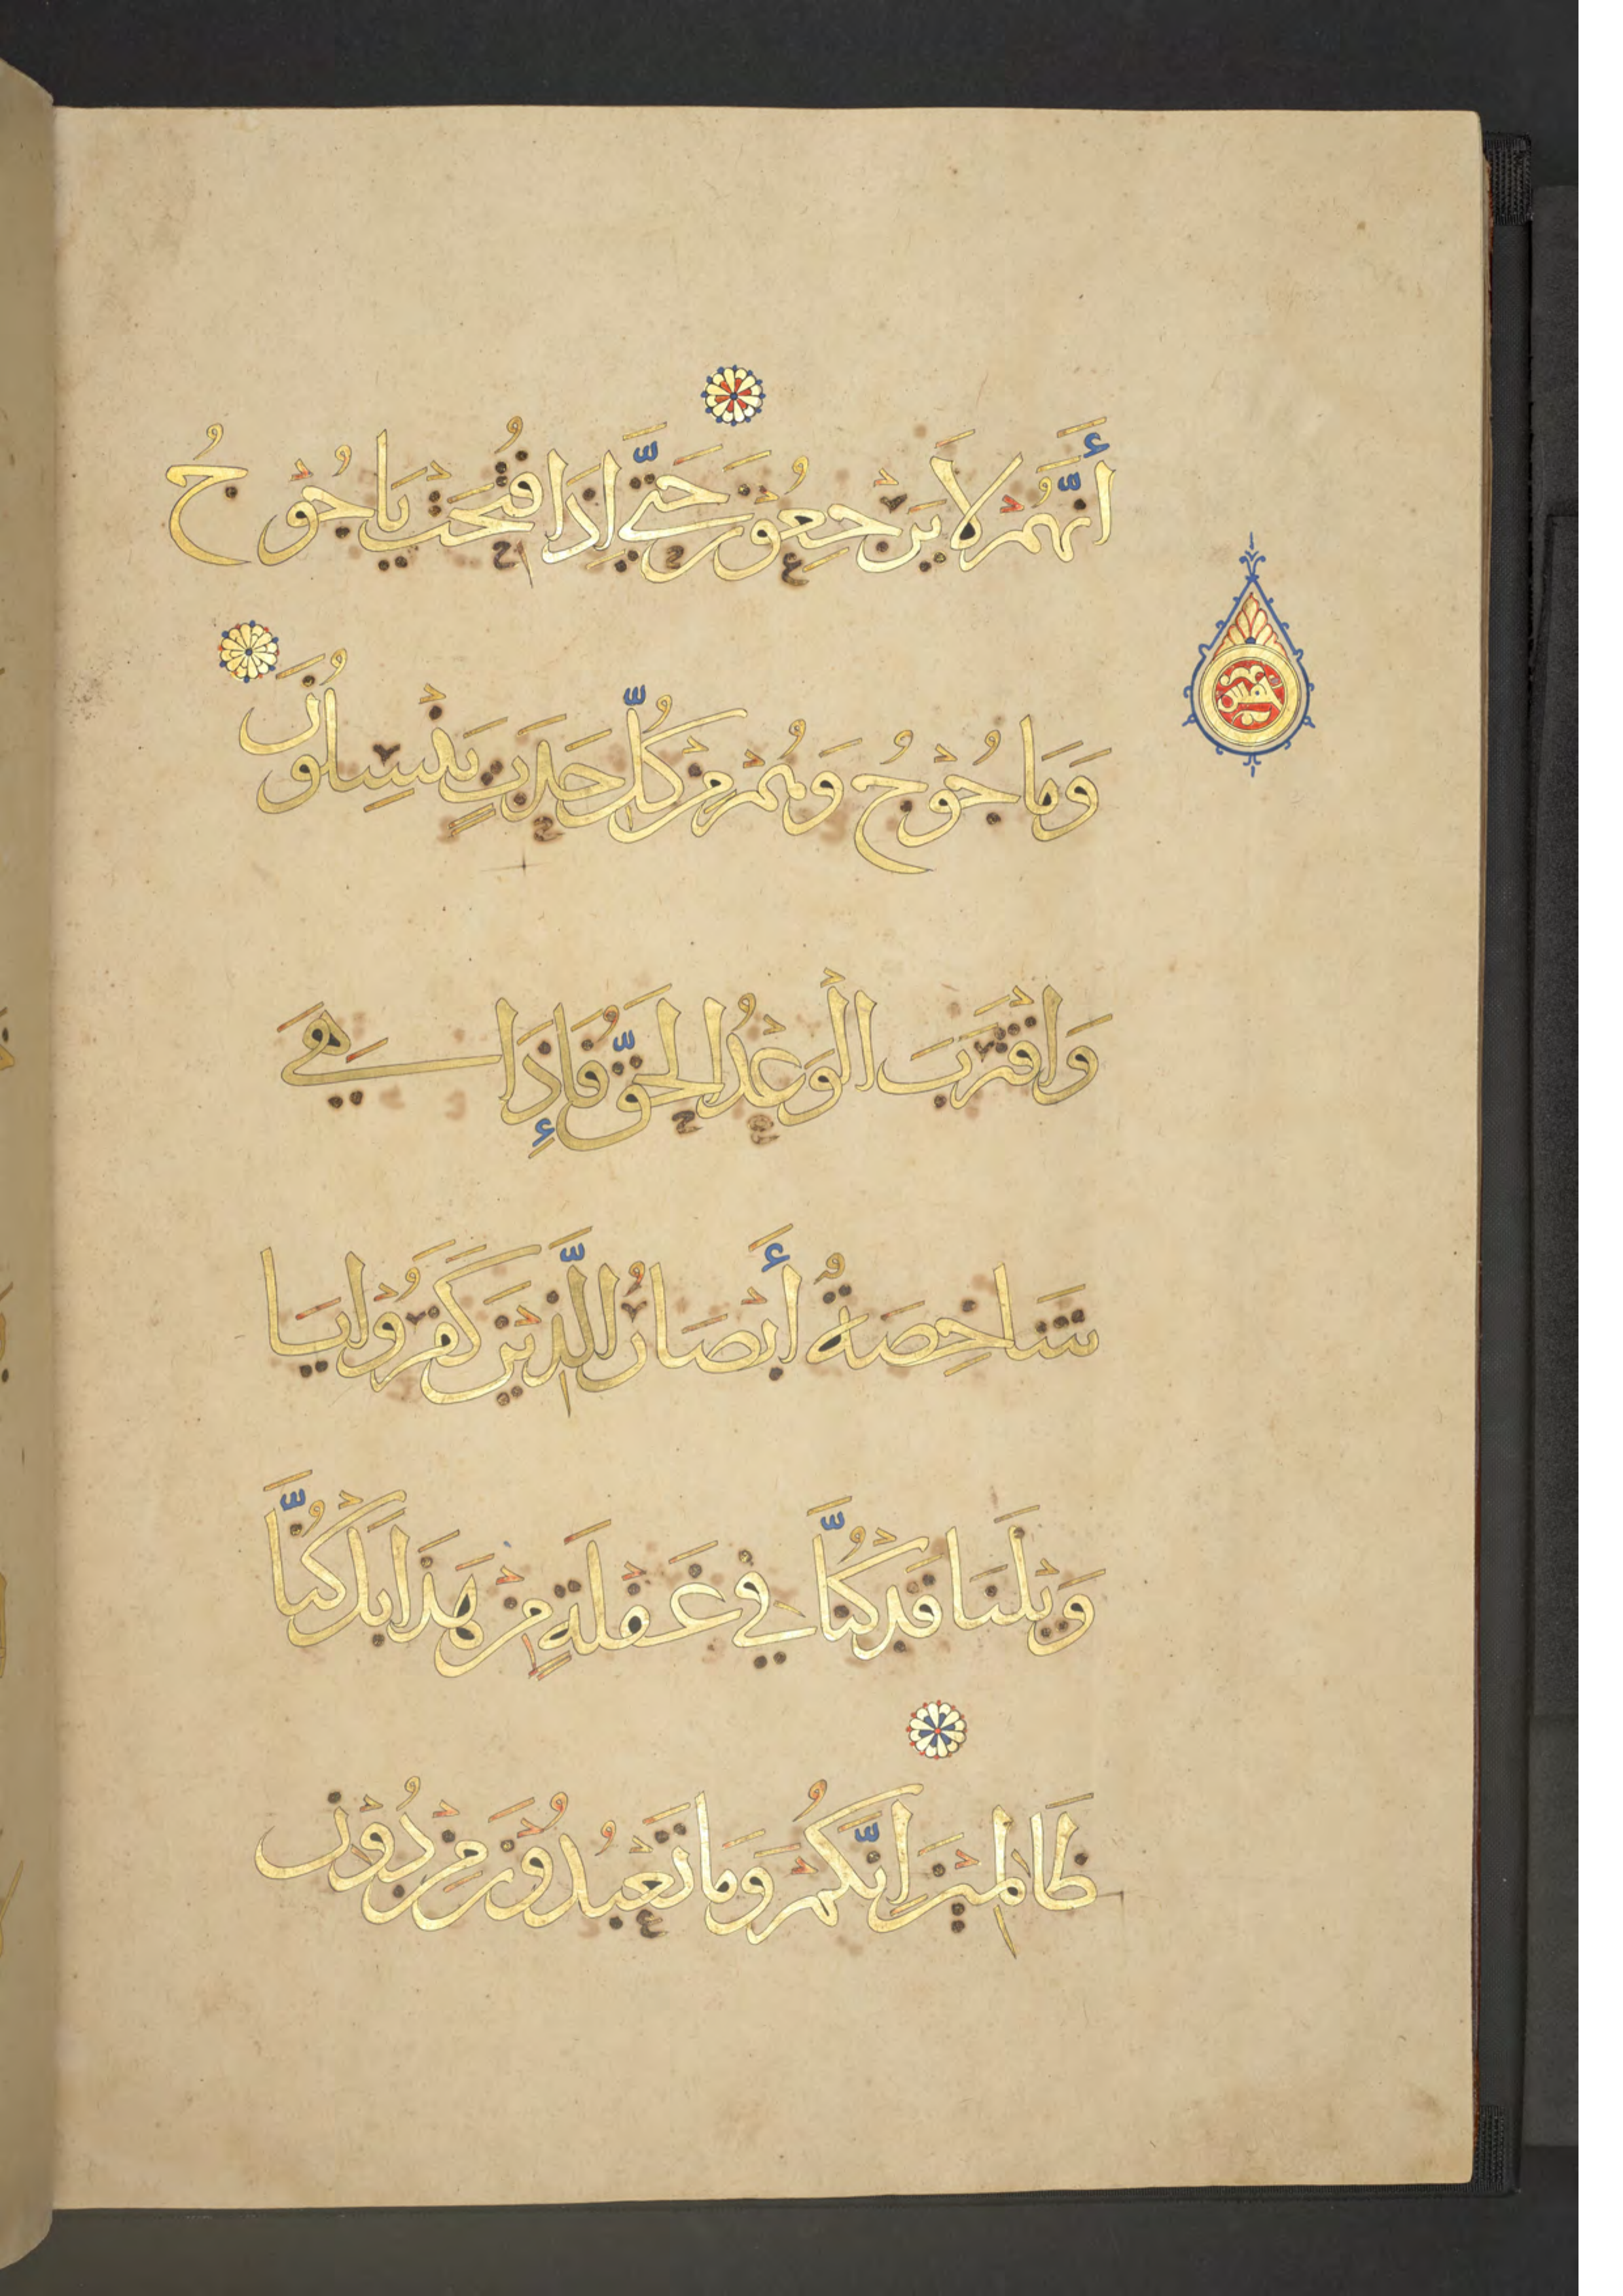 أَنَّهُمْ لَا يَرْجِعُوْنَ حَتَّى إِذَا فُتِحَتْ يَاجُوْجُ
وَمَاجُوْجُ وَهُمْ مِنْ كُلِّ حَدَبٍ يَنْسِلُوْنَ
وَاقْتَرَبَ الْوَعْدُ الْحَقُّ فَإِذَا هِيَ
شَاخِصَةٌ أَبْصَارُ الَّذِيْنَ كَفَرُوْا يَا
وَيْلَنَا قَدْ كُنَّا فِيْ غَفْلَةٍ مِنْ هَذَا بَلْ كُنَّا
ظَالِمِيْنَ إِنَّكُمْ وَمَا تَعْبُدُوْنَ مِنْ دُوْنِ